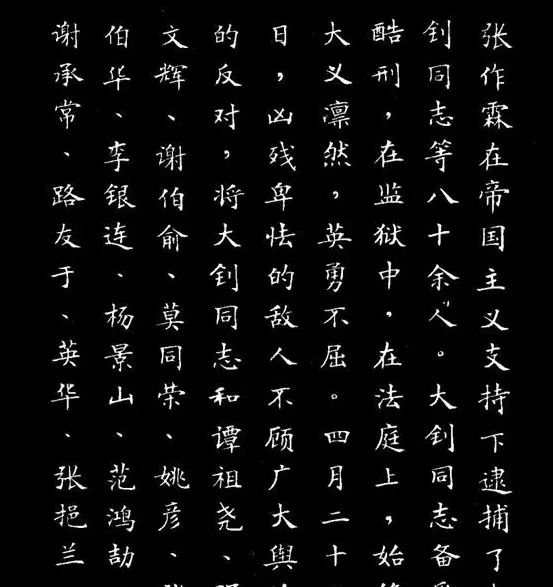 张作霖在帝国主义支持下逮捕了
钊同志等八十余人。大钊同志备
酷刑，在监狱中，在法庭上，始
大义凛然，英勇不屈。四月二十
日，凶残卑怯的敌人不顾广大舆
的反对，将大钊同志和谭祖尧、
文辉、谢伯俞、莫同荣、姚彦、
伯华、李银连、杨景山、范鸿劼
谢承常、路友于、英华、张挹兰